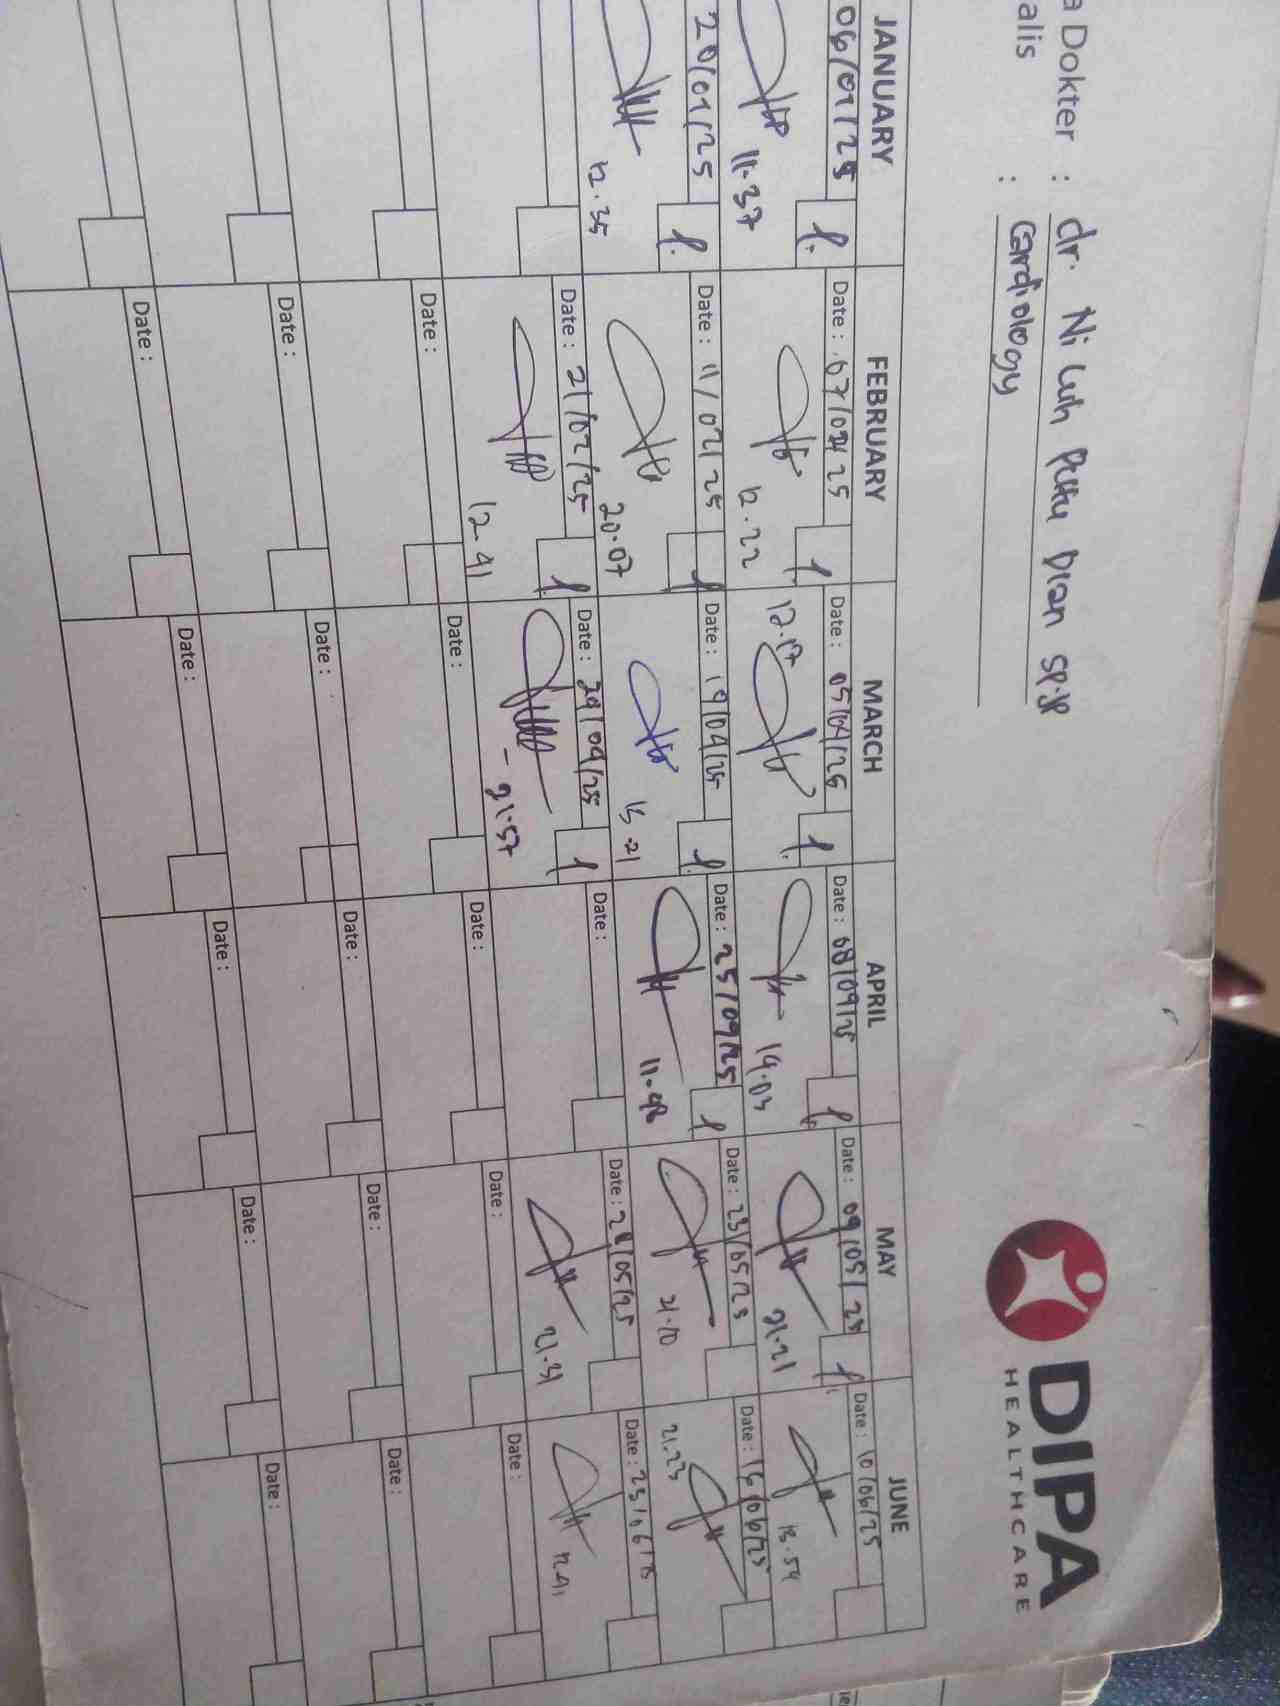 a Dokter : dr. Ni Luh Putu Dian SP.JP
alis : Cardiology
DIPA
HEALTHCARE
JANUARY FEBRUARY MARCH APRIL MAY JUNE
06/01/25 Date : 07/02/25 Date : 05/04/25 Date : 08/09/25 Date : 09/05/25 Date : 10/06/25
11.37 12.22 12.17 19.03 21.21 13.54
20/01/25 Date : 11/02/25 Date : 19/04/25 Date : 25/09/25 Date : 23/05/25 Date : 16/06/25
12.35 20.07 15.21 11.48 21.10 21.23
Date : 21/02/25 Date : 29/04/25 Date : Date : 28/05/25 Date : 23/06/25
12.41 21.57 21.31 12.41
Date : Date : Date : Date : Date :
Date : Date : Date : Date : Date :
Date : Date : Date : Date :